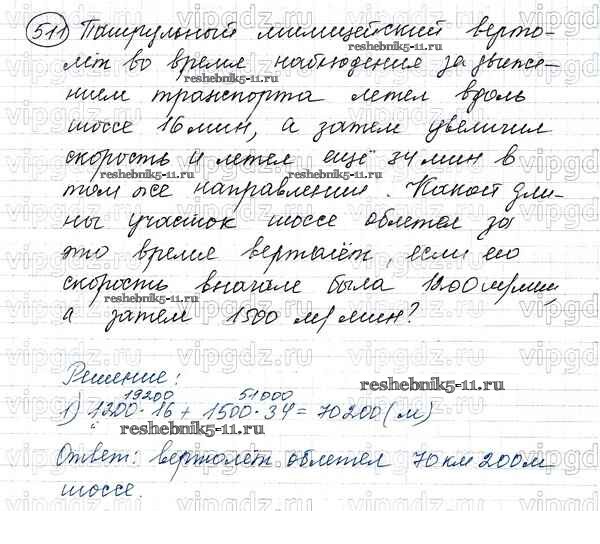 511 Патрульный милицейский верто-
лёт во время наблюдения за движе-
нием транспорта летел вдоль
шоссе 16 мин, а затем увеличил
скорость и летел ещё 34 мин в
том же направлении. Какой дли-
ны участок шоссе облетел за
это время вертолёт, если его
скорость вначале была 1200 м/мин,
а затем 1500 м/мин?
Решение:
19200 51000
1) 1200 · 16 + 1500 · 34 = 70200 (м)
Ответ: вертолёт облетел 70 км 200 м
шоссе.
reshebnik5-11.ru
reshebnik5-11.ru
reshebnik5-11.ru
reshebnik5-11.ru
reshebnik5-11.ru
reshebnik5-11.ru